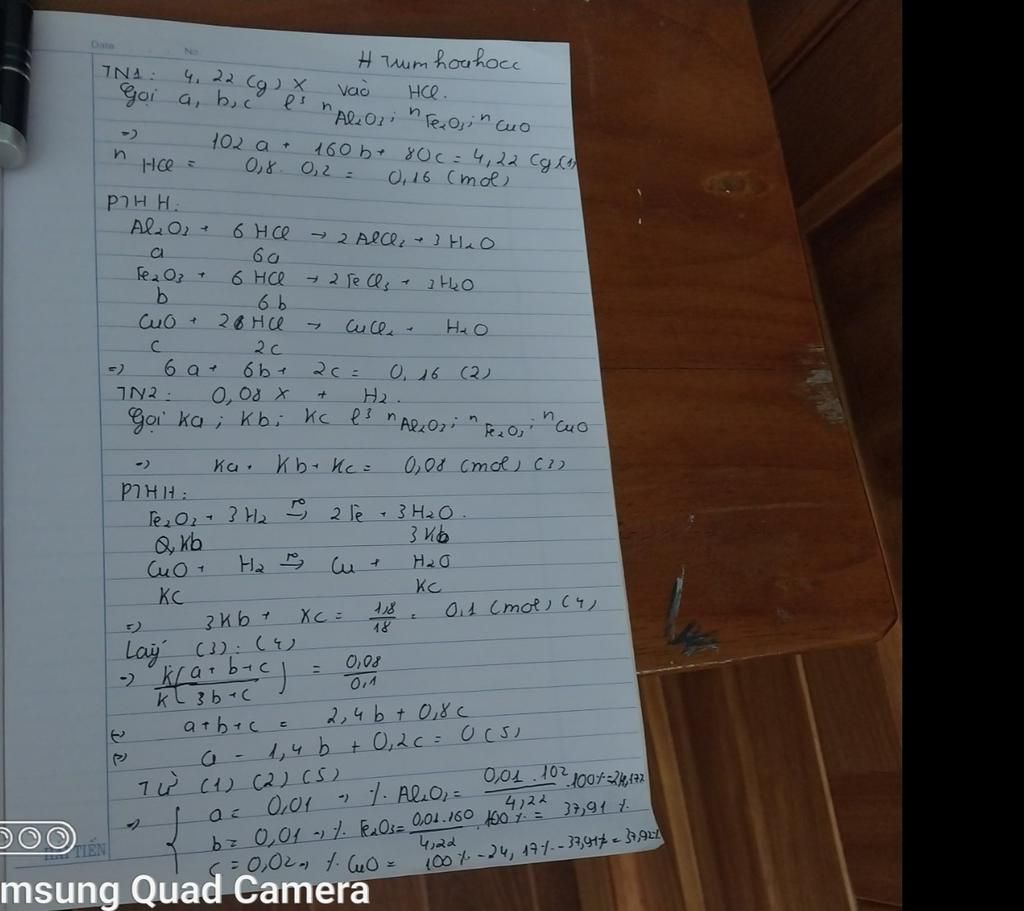 Date No.
# rumhoahocc
TN1: 4,22 (g) X vào HCl.
Gọi a, b, c l³ nAl₂O₃; nFe₂O₃; nCuO
=> 102a + 160b + 80c = 4,22 (g) (1)
nHCl = 0,8. 0,2 = 0,16 (mol)
PTHH:
Al₂O₃ + 6HCl → 2AlCl₃ + 3H₂O
a 6a
Fe₂O₃ + 6HCl → 2FeCl₃ + 3H₂O
b 6b
CuO + 2HCl → CuCl₂ + H₂O
c 2c
=> 6a + 6b + 2c = 0,16 (2)
TN2: 0,08 X + H₂.
Gọi Ka; Kb; Kc l³ nAl₂O₃; nFe₂O₃; nCuO
=> Ka + Kb + Kc = 0,08 (mol) (3)
PTHH:
Fe₂O₃ + 3H₂ →(t°) 2Fe + 3H₂O.
Kb 3Kb
CuO + H₂ →(t°) Cu + H₂O
Kc Kc
=> 3Kb + Kc = 1,8/18 = 0,1 (mol) (4)
Lấy (3) : (4)
=> K(a + b + c)/K(3b + c) = 0,08/0,1
(=) a+b+c = 2,4b + 0,8c
(=) a - 1,4b + 0,2c = 0 (5)
Từ (1) (2) (5)
=> { a = 0,01 → % Al₂O₃ = 0,01.102/4,22 .100% = 24,17%
b = 0,01 → % Fe₂O₃ = 0,01.160/4,22 .100% = 37,91%
c = 0,02 → % CuO = 100% - 24,17% - 37,91% = 37,92%
HẢI TIẾN
msung Quad Camera